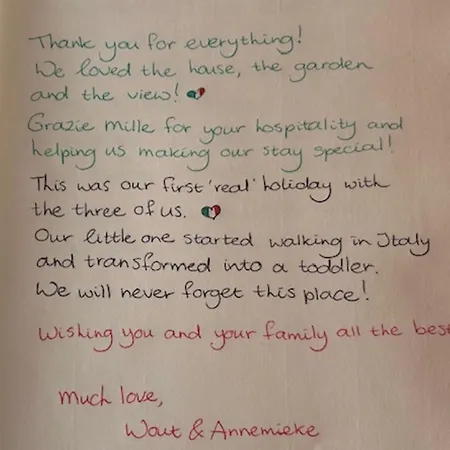 Thank you for everything!
We loved the house, the garden
and the view!
Grazie mille for your hospitality and
helping us making our stay special!
This was our first 'real' holiday with
the three of us.
Our little one started walking in Italy
and transformed into a toddler.
We will never forget this place!
Wishing you and your family all the best
much love,
Wout & Annemieke